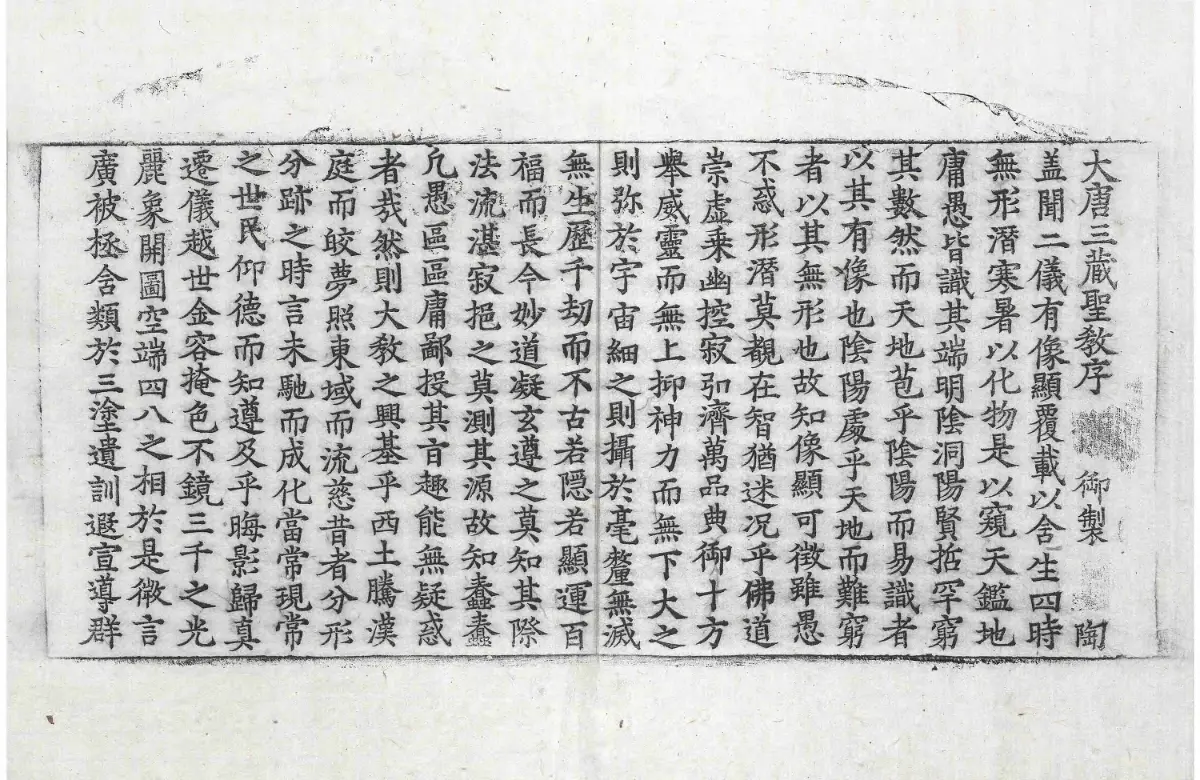 大唐三蔵聖敎序 御製 陶
盖聞二儀有像顯覆載以含生四時
無形潛寒暑以化物是以窺天鑑地
庸愚皆識其端明陰洞陽賢哲罕窮
其數然而天地苞乎陰陽而易識者
以其有像也陰陽處乎天地而難窮
者以其無形也故知像顯可徵雖愚
不惑形潛莫覩在智猶迷况乎佛道
崇虛乗幽控寂弘濟萬品典御十方
舉威靈而無上抑神力而無下大之
則弥於宇宙細之則攝於毫釐無滅
無生歷千劫而不古若隱若顯運百
福而長今妙道凝玄遵之莫知其際
法流湛寂挹之莫測其源故知蠢蠢
凡愚區區庸鄙投其旨趣能無疑惑
者哉然則大敎之興基乎西土騰漢
庭而皎夢照東域而流慈昔者分形
分跡之時言未馳而成化當常現常
之世民仰德而知遵及乎晦影歸真
遷儀越世金容掩色不鏡三千之光
麗象開圖空端四八之相於是微言
廣被拯含類於三塗遺訓遐宣導群